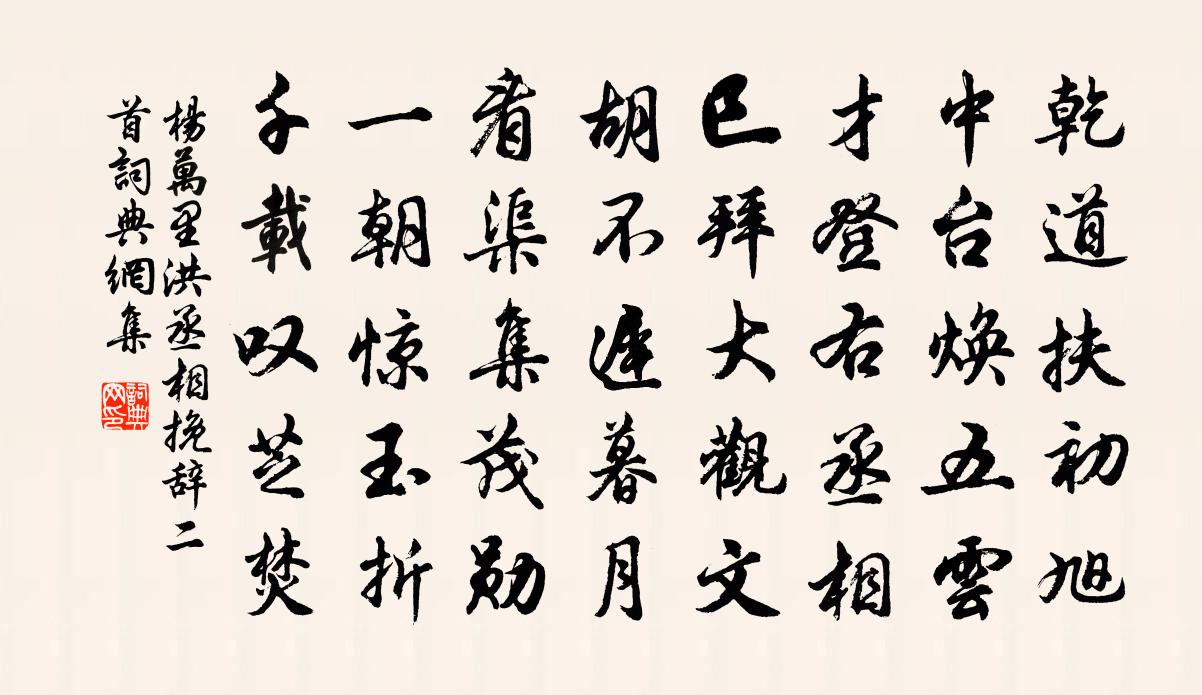 乾道扶初旭
中台焕五雲
才登右丞相
已拜大觀文
胡不遲暮月
看渠集茂勋
一朝惊玉折
千載叹芝焚
楊萬里洪丞相挽辞二
首詞典網集
詞典
网印